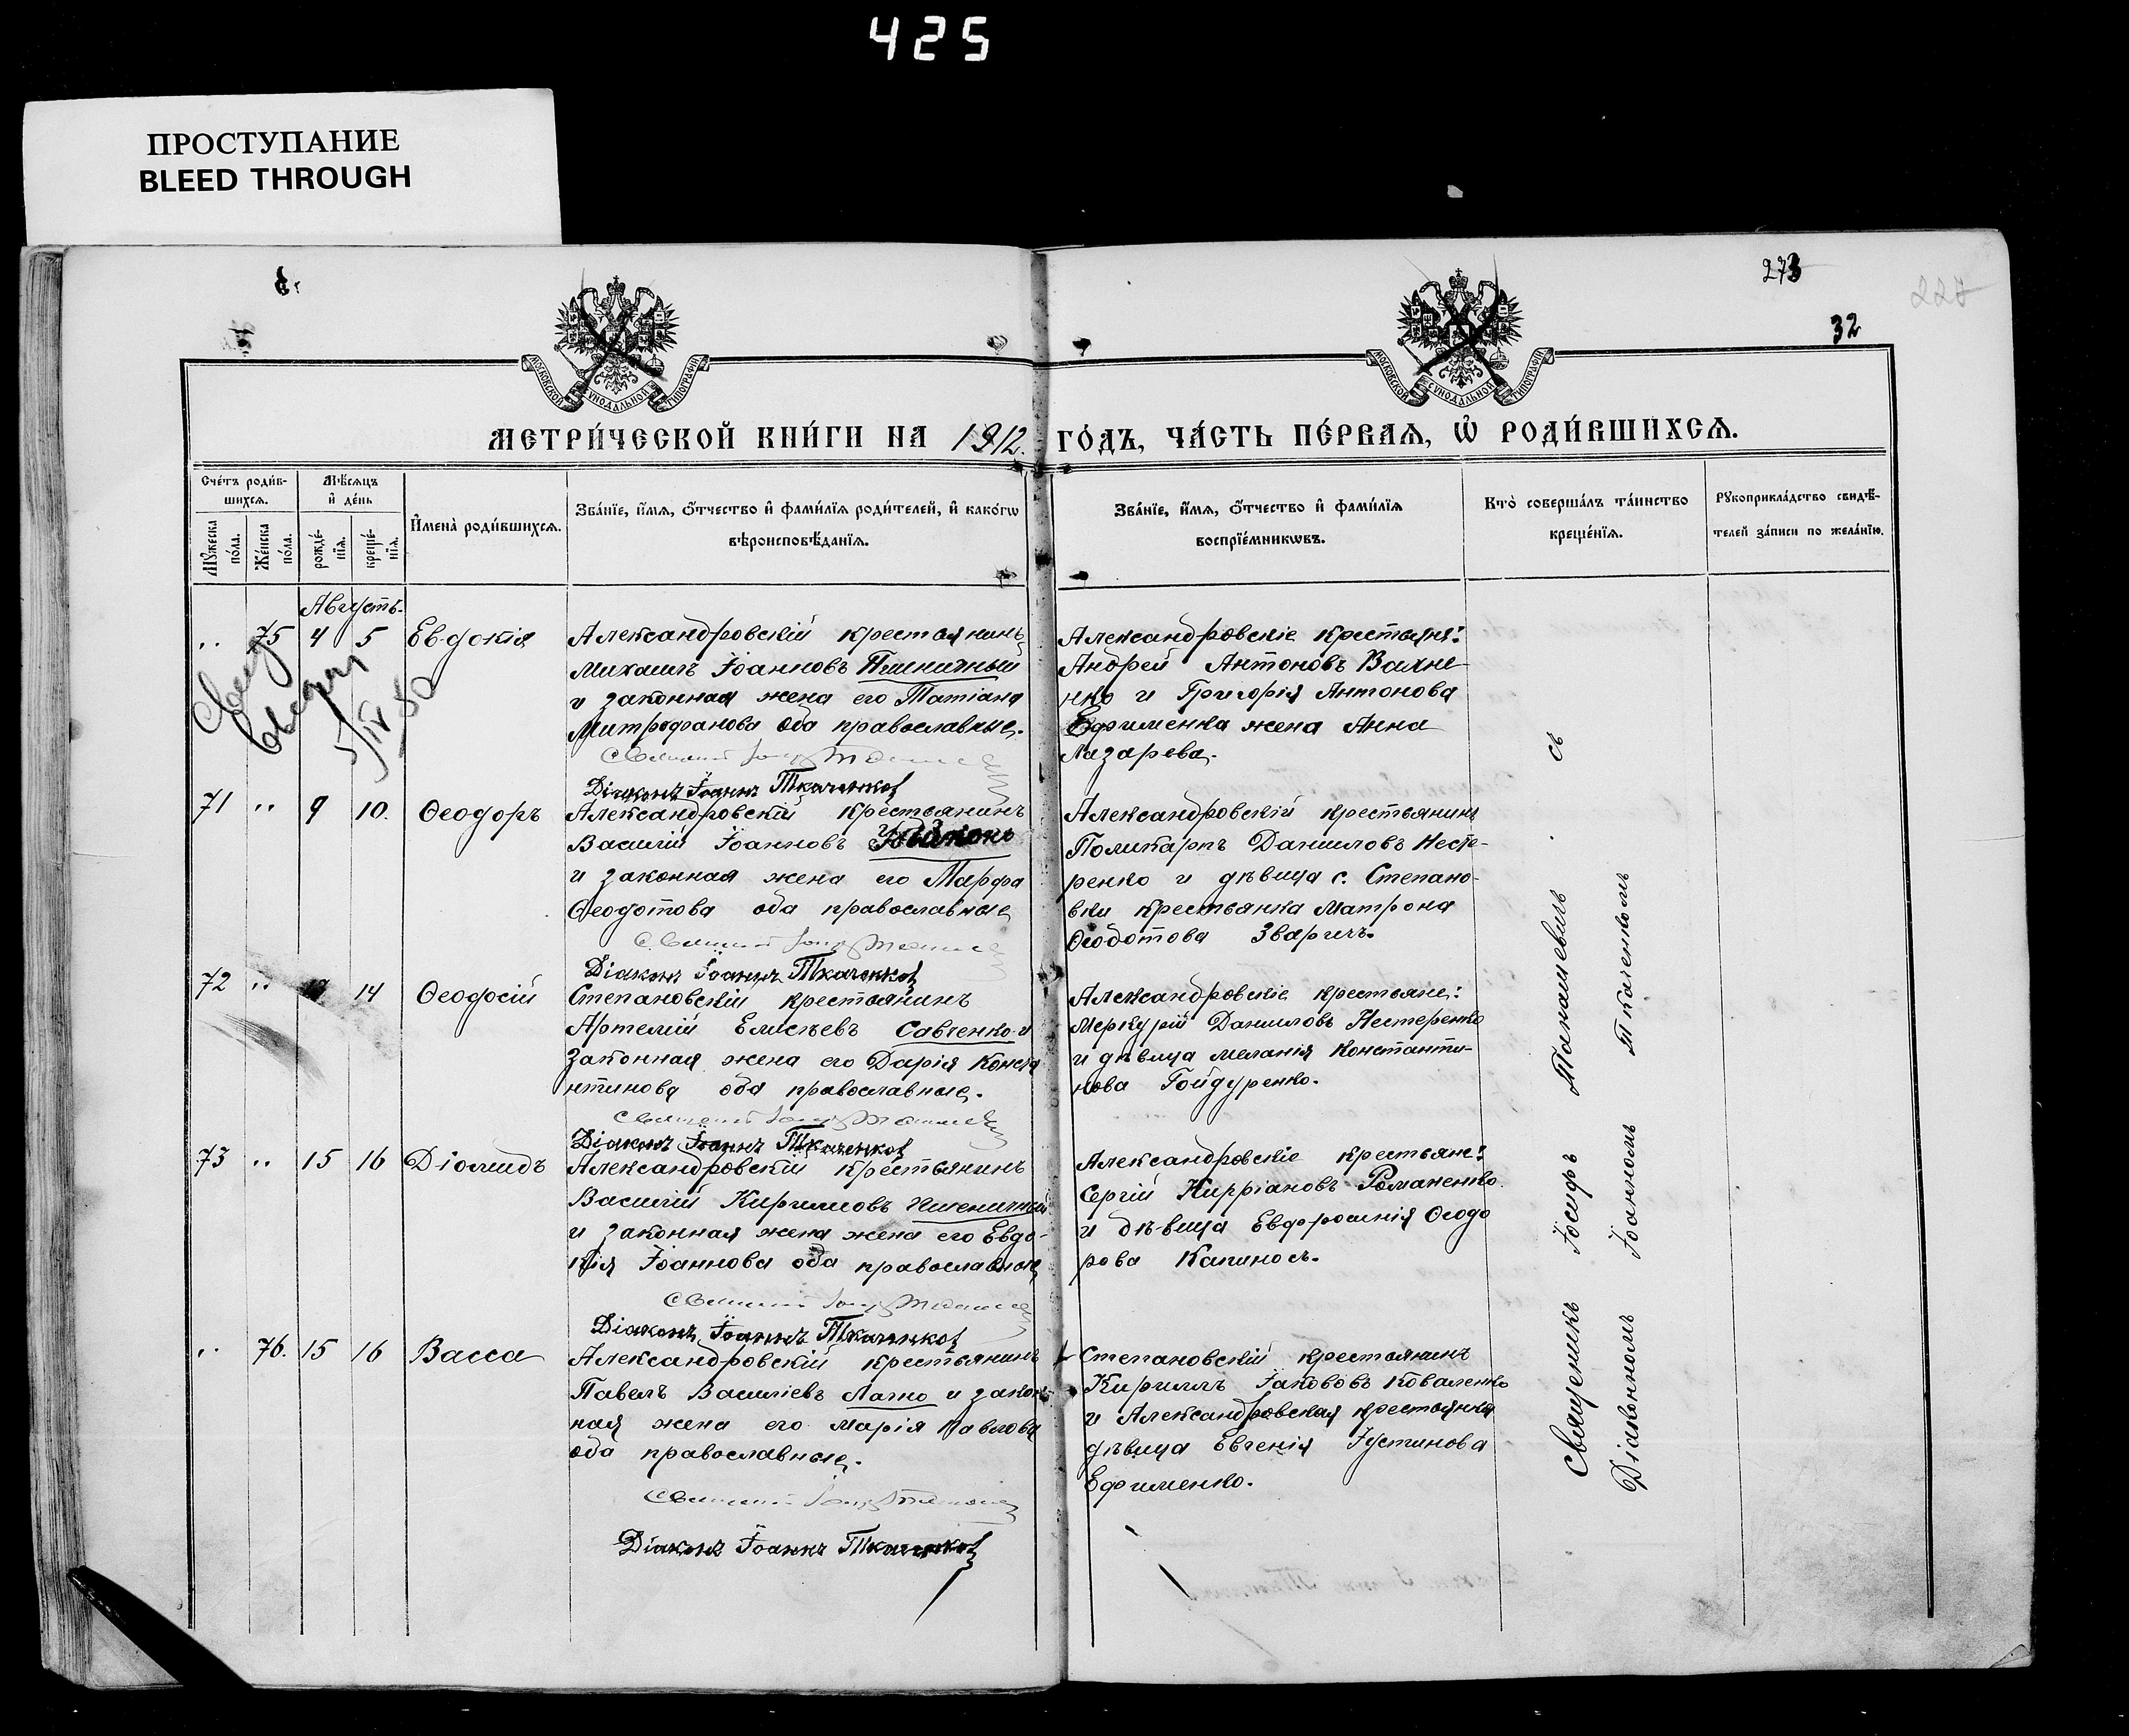 425
ПРОСТУПАНИЕ
BLEED THROUGH
273
32
МОСКОВСКОЙ СѴНОДАЛЬНОЙ ТИПОГРАФІИ
МОСКОВСКОЙ СѴНОДАЛЬНОЙ ТИПОГРАФІИ
МЕТРИ́ЧЕСКОЙ КНИ́ГИ НА 1912. ГО́ДЪ, ЧА́СТЬ ПЕ́РВАѦ, Ѡ҆ РОДИ́ВШИХСѦ.
Сче́тъ роди́в-
шихсѧ.
Мꙋ́жеска
по́ла.
Же́нска
по́ла.
Мѣ́сѧцъ
и҆ де́нь
рожде́-
нїѧ.
креще́-
нїѧ.
И҆мена̀ роди́вшихсѧ.
Зва́нїе, и҆́мѧ, ѻ҆́тчество и҆ фами́лїѧ роди́телей, и҆ како́гѡ
вѣроисповѣ́данїѧ.
Зва́нїе, и҆́мѧ, ѻ҆́тчество и҆ фами́лїѧ
воспрїе́мникѡвъ.
Кто̀ соверша́лъ та́инство
креще́нїѧ.
Рꙋкоприкла́дство свидѣ́-
телей за́писи по жела́нїю.
Августъ.
·· 75 4 5 Евдокія
Александровскій крестьянинъ
Михаилъ Іоанновъ Пшеничный
и законная жена его Татіана
Митрофанова оба православные.
Діаконъ Іоаннъ Ткаченко
Александровскіе крестьяне:
Андрей Антоновъ Вахне-
нко и Григорія Антонова
Ефименка жена Анна
Лазарева.
71 ·· 9 10. Ѳеодоръ
Александровскій крестьянинъ
Василій Іоанновъ
и законная жена его Марфа
Ѳеодотова оба православные
Діаконъ Іоаннъ Ткаченко
Александровскій крестьянинъ
Поликарпъ Даниловъ Несте-
ренко и дѣвица с. Степано-
вки крестьянка Матрона
Ѳеодотова Зваричъ.
72 ·· 14 Ѳеодосій
Степановскій крестьянинъ
Артемій Елисѣевъ Савченко и
законная жена его Дарія Конста
нтинова оба православные.
Діаконъ Іоаннъ Ткаченко
Александровскіе крестьяне:
Меркурій Даниловъ Нестеренко
и дѣвица Меланія Константи-
нова Гойдуренко.
73 ·· 15 16 Діомидъ
Александровскій крестьянинъ
Василій Кирилловъ Пшеничный
и законная жена жена его Евдо-
кія Іоаннова оба православные
Діаконъ Іоаннъ Ткаченко
Александровскіе крестьяне:
Сергій Кипріановъ Романенко
и дѣвица Евфросинія Ѳеодо
рова Капиносъ.
·· 76. 15 16 Васса
Александровскій крестьянинъ
Павелъ Василіевъ Лахно и закон-
ная жена его Марія Павлова
оба православные.
Діаконъ Іоаннъ Ткаченко
Степановскій крестьянинъ
Кириллъ Іаковъ Коваленко
и Александровская крестьянка
дѣвица Евгенія Іустинова
Ефименко.
Священникъ Іосифъ Танашевичъ съ
Діакономъ Іоанномъ Ткаченкомъ